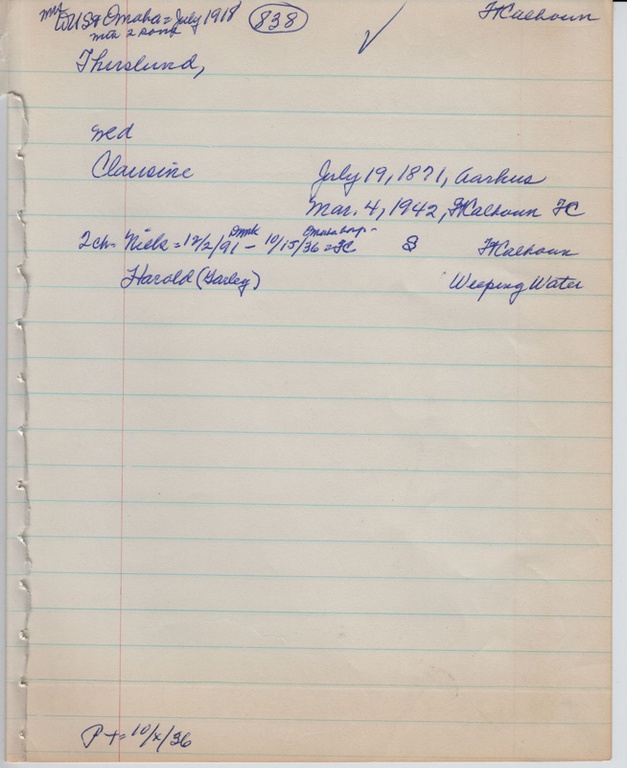 USA Omaha = July 1918 (838) FtCalhoun
with 2 sons
Thirslund,
wed
Clausine July 19, 1871, Aarhus
Mar. 4, 1942, FtCalhoun FC
Dmk Omaha hosp -
2 ch = Niels = 12/2/91 - 10/15/36 = FC S FtCalhoun
Harold (Harley) Weeping Water
P+ = 10/x/36